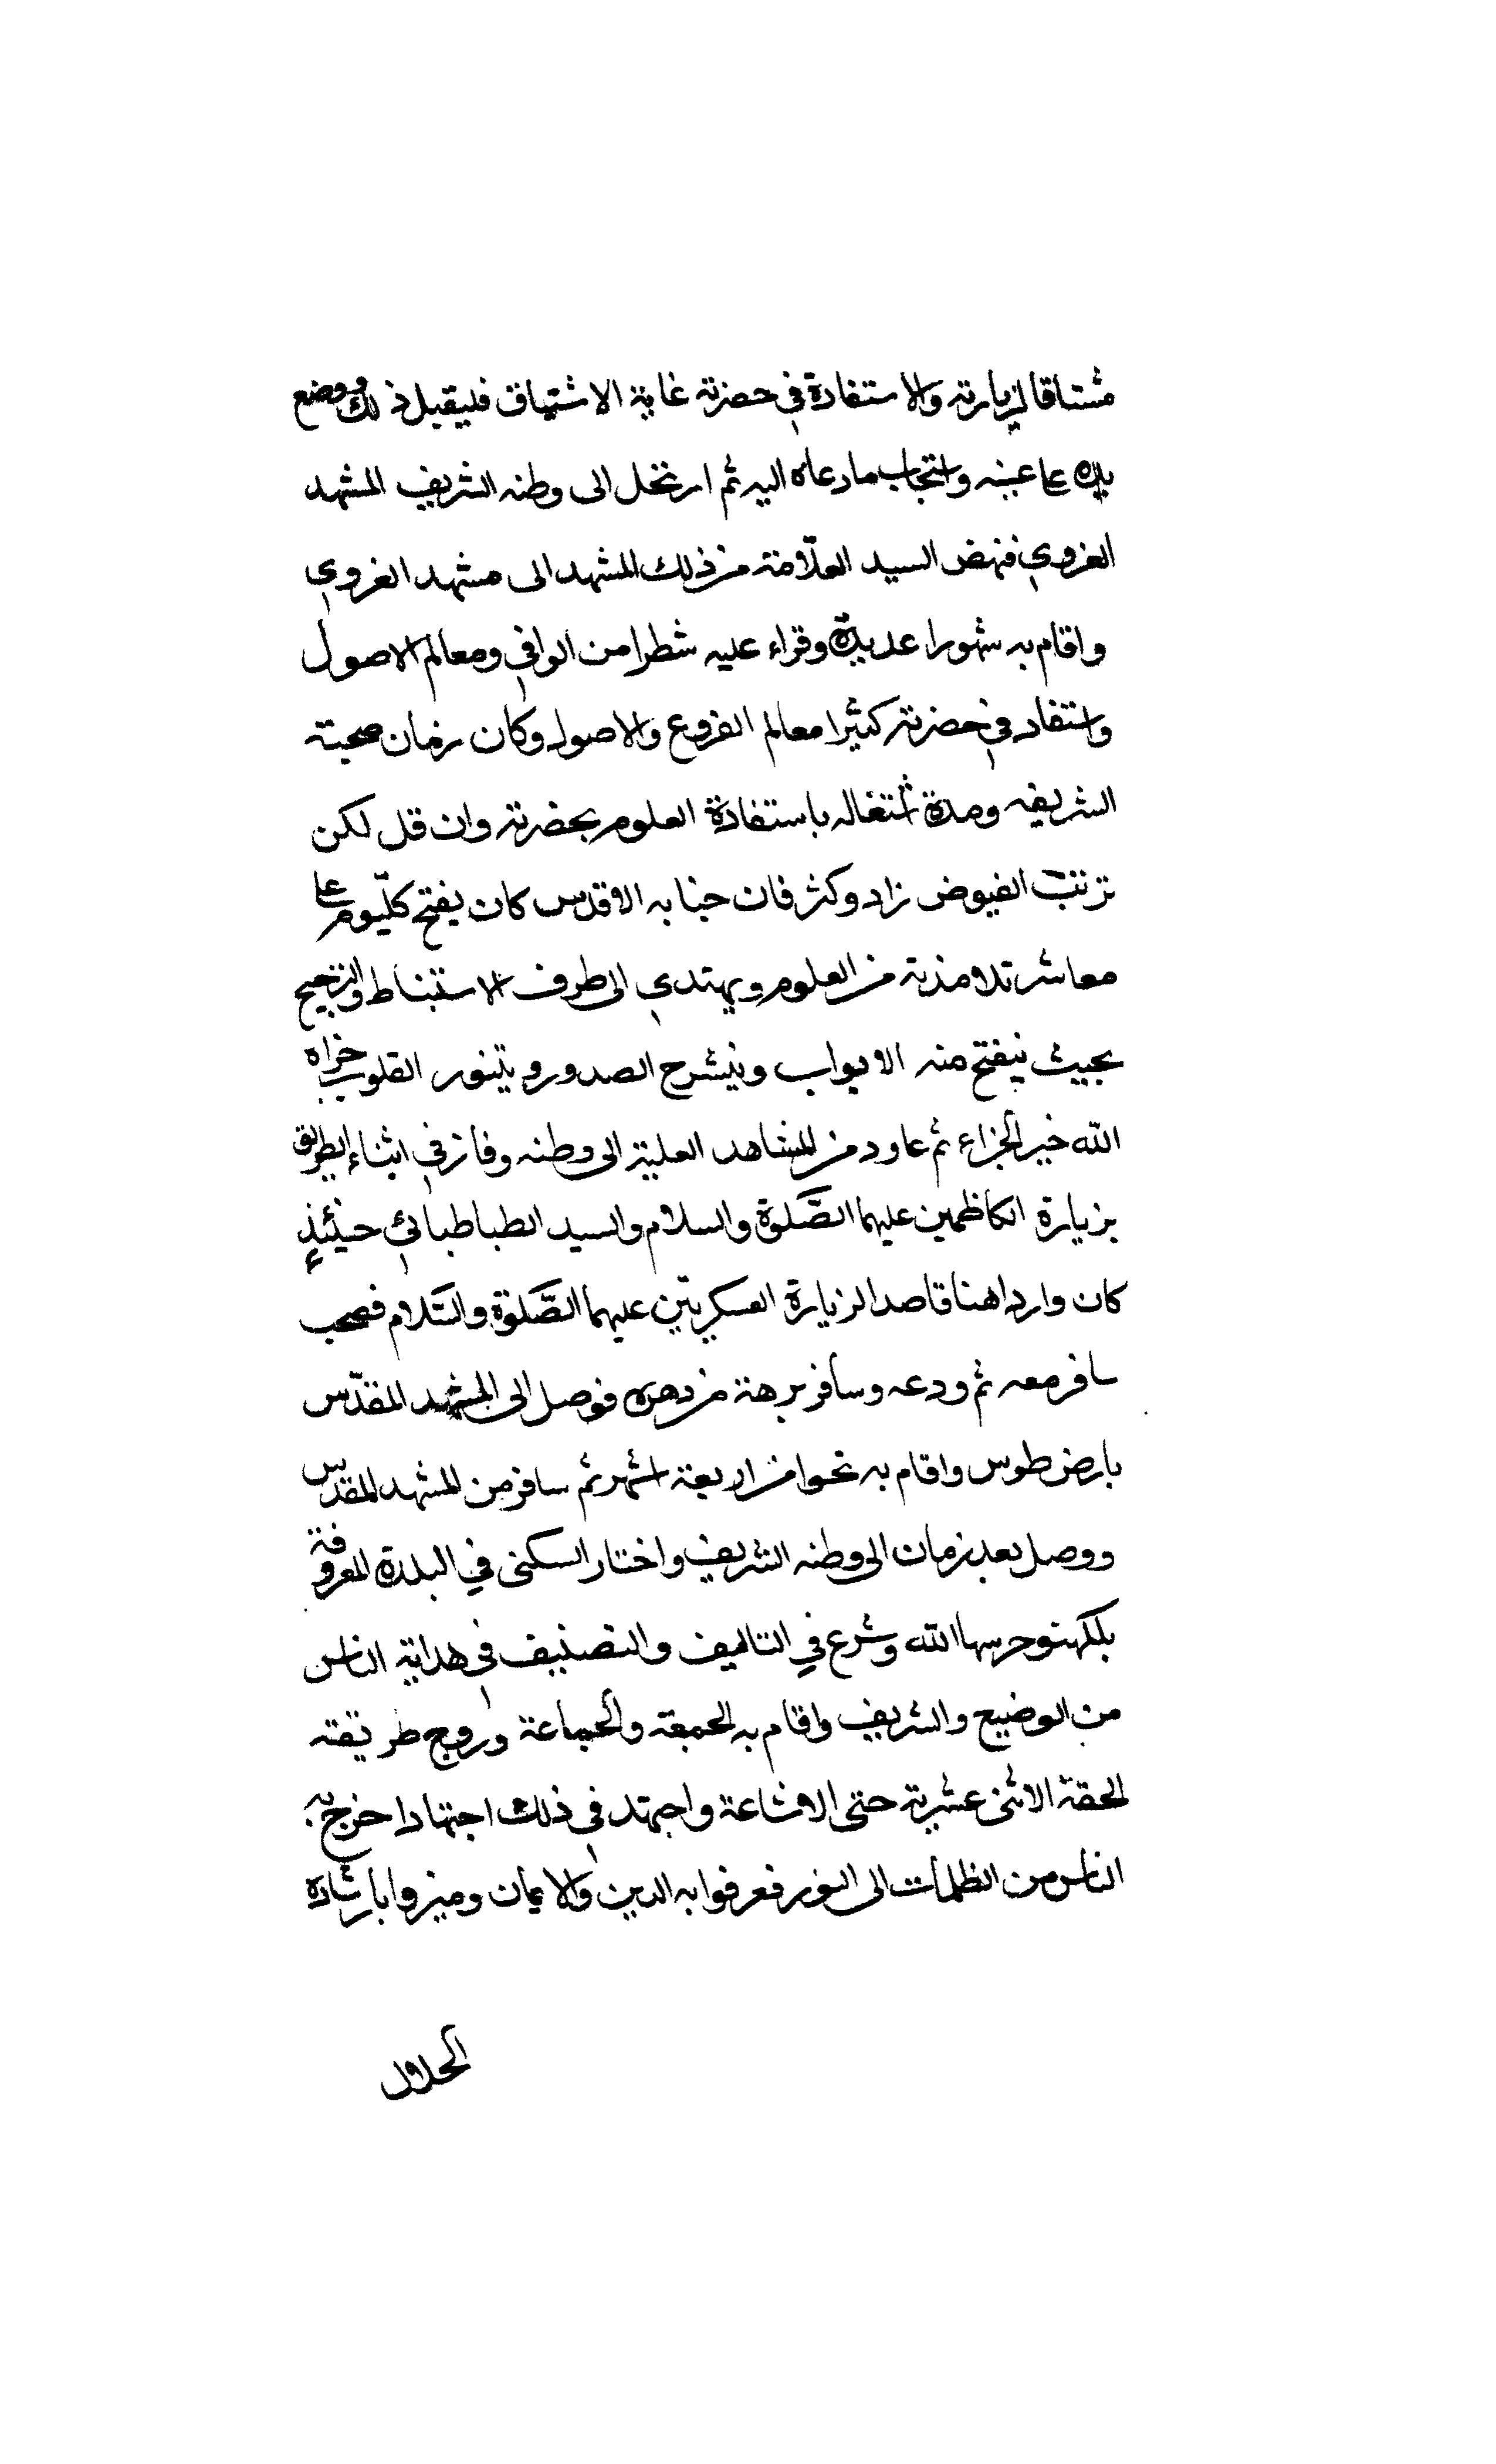 مشتاقا لزيارته والاستفادة في حضرته غاية الاشتياق فليقبل ذلك ووضع
يده على عينه واستجاب ما دعاه اليه ثم ارتحل الى وطنه الشريف المشهد
الغروي فنهض السيد العلّامة من ذلك المشهد الى مشهد الغروي
واقام به شهورا عديدة وقراء عليه شطرا من الوافي ومعالم الاصول
واستفاد في حضرته كثيرا معالم الفروع والاصول وكان زمان صحبته
الشريفه ومدة اشتغاله باستفادة العلوم بحضرته وان قل لكن
ترتب الفيوض زاد وكثر فان جنابه الاقدس كان يفتح كلّيوم على
معاشر تلامذته من العلوم ويهتدي الى طرف الاستنباط والترجيح
بحيث ينفتح منه الابواب وينشرح الصدور ويتنور القلوب جزاه
الله خير الجزاء ثم عاود من المشاهد العلية الى وطنه وفاز في اثناء الطريق
بزيارة الكاظمين عليهما الصَّلوة والسلام والسيد الطباطبائي حينئذٍ
كان واردا هنا قاصدا لزيارة العسكريّين عليهما الصَّلوة والسَّلام فصحب
سافر معه ثم ودعه وسافر برهة من دهره فوصل الى المشهد المقدّس
بارض طوس واقام به نحوا من اربعة اشهر ثم سافر من المشهد المقدس
ووصل بعد زمان الى وطنه الشريف واختار السكنى في البلدة المعروفة
بلكهنو حرسها الله وشرع في التاليف والتصنيف في هداية الناس
من الوضيع والشريف واقام به الجمعة والجماعة وروج طريقته
الحقة الاثنى عشرية حتى الاشاعة واجتهد في ذلك اجتهادا خرج به
الناس من الظلمات الى النور فعرفوا به الدين والايمان وميزوا بارشاده
الحلال